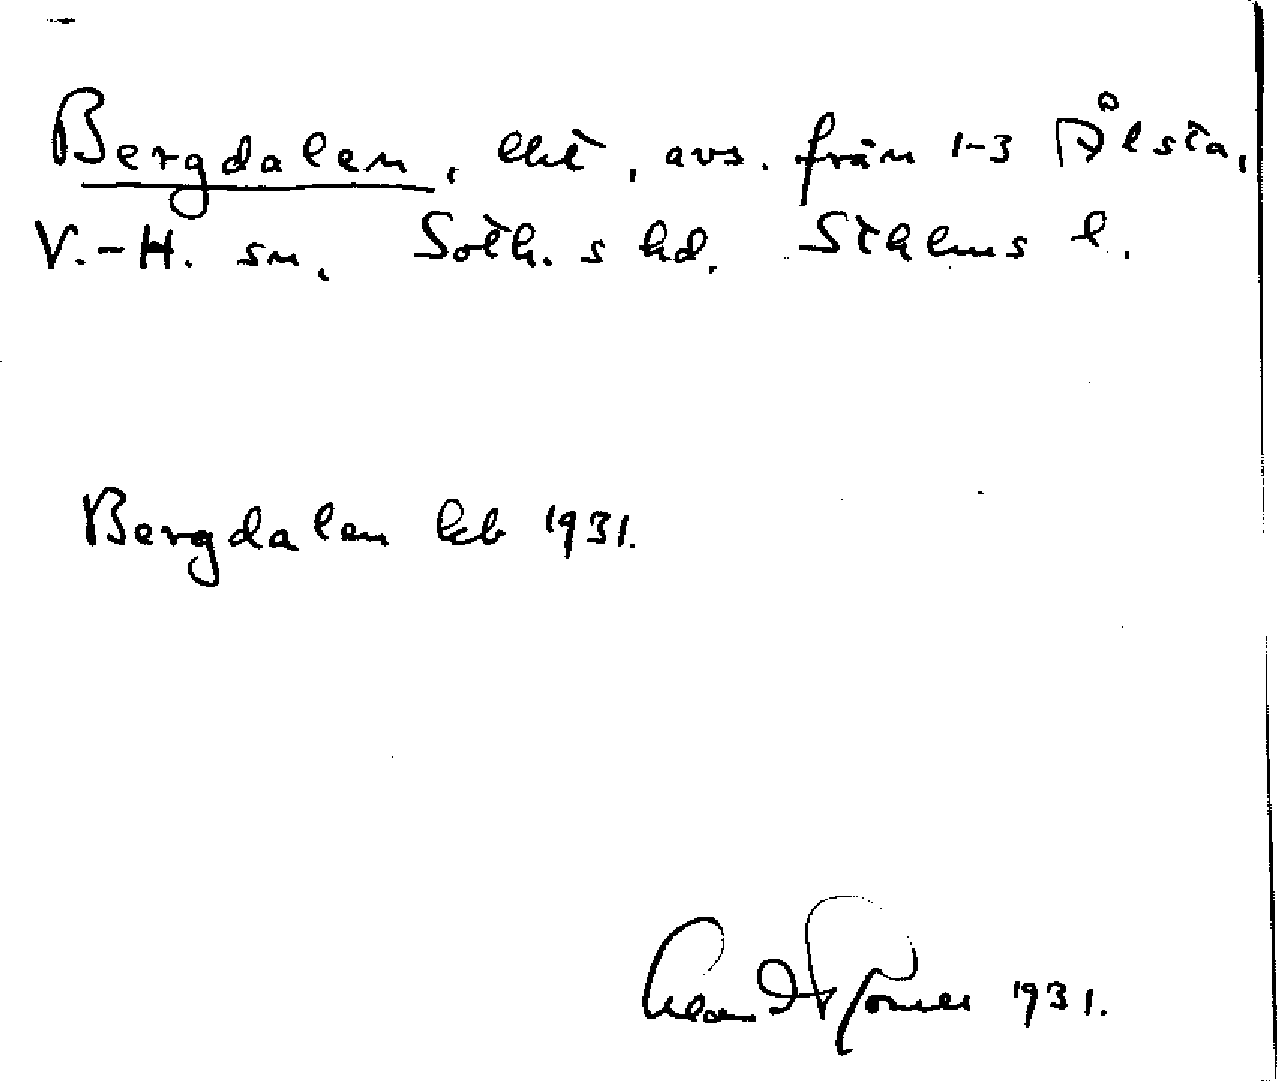 Bergdalen, lht, avs. från 1-3 Ålsta,
V.-H. sn, Soth. s hd, Sthlms l.
Bergdalen kb 1931.
1931.